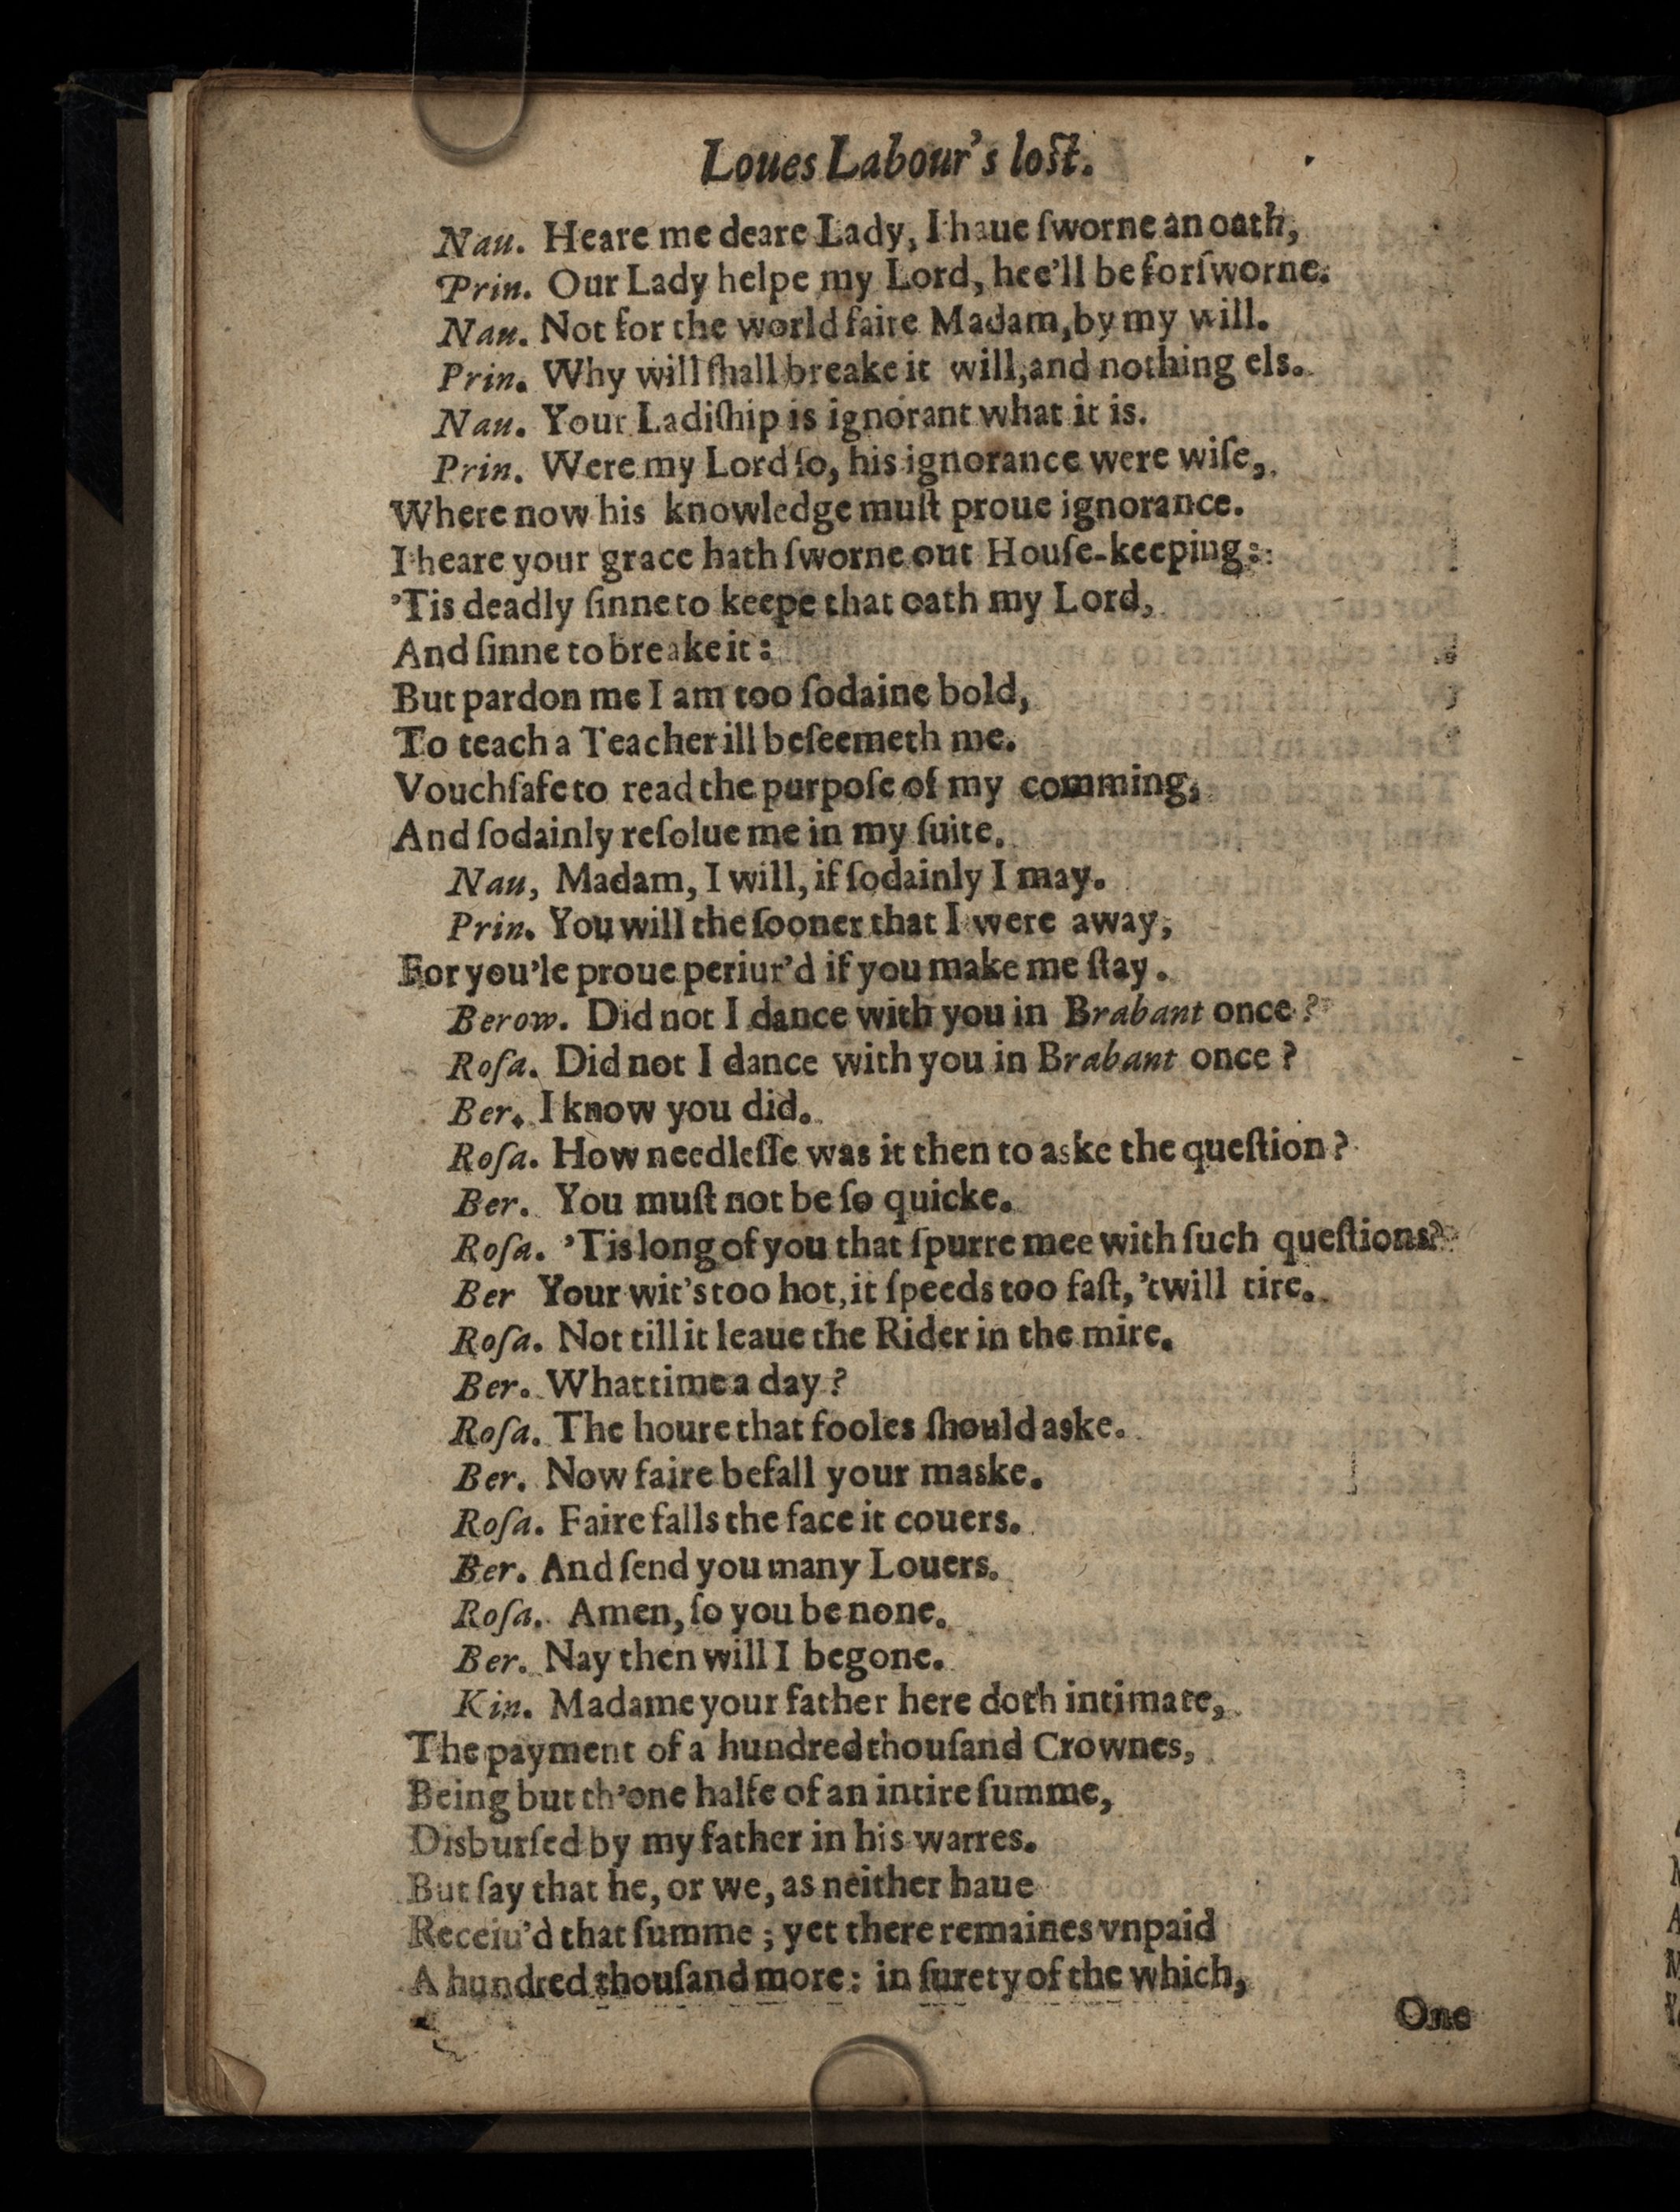 Loues Labour's loſt.
Nau. Heare me deare Lady, I haue ſworne an oath,
Prin. Our Lady helpe my Lord, hee'll be forſworne.
Nau. Not for the world faire Madam, by my will.
Prin. Why will ſhall breake it will, and nothing els.
Nau. Your Ladiſhip is ignorant what it is.
Prin. Were my Lord ſo, his ignorance were wiſe,
Where now his knowledge muſt proue ignorance.
I heare your grace hath ſworne out Houſe-keeping:
'Tis deadly ſinne to keepe that oath my Lord,
And ſinne to breake it:
But pardon me I am too ſodaine bold,
To teach a Teacher ill beſeemeth me.
Vouchſafe to read the purpoſe of my comming,
And ſodainly reſolue me in my ſuite.
Nau, Madam, I will, if ſodainly I may.
Prin. You will the ſooner that I were away,
For you'le proue periur'd if you make me ſtay.
Berow. Did not I dance with you in Brabant once?
Roſa. Did not I dance with you in Brabant once?
Ber. I know you did.
Roſa. How needleſſe was it then to aske the queſtion?
Ber. You muſt not be ſo quicke.
Roſa. 'Tis long of you that ſpurre mee with ſuch queſtions?
Ber Your wit's too hot, it ſpeeds too faſt, 'twill tire.
Roſa. Not till it leaue the Rider in the mire.
Ber. What time a day?
Roſa. The houre that fooles ſhould aske.
Ber. Now faire befall your maske.
Roſa. Faire falls the face it couers.
Ber. And ſend you many Louers.
Roſa. Amen, ſo you be none.
Ber. Nay then will I begone.
Kin. Madame your father here doth intimate,
The payment of a hundred thouſand Crownes,
Being but th'one halfe of an intire ſumme,
Disburſed by my father in his warres.
But ſay that he, or we, as neither haue
Receiu'd that ſumme; yet there remaines vnpaid
A hundred thouſand more: in ſurety of the which,
One